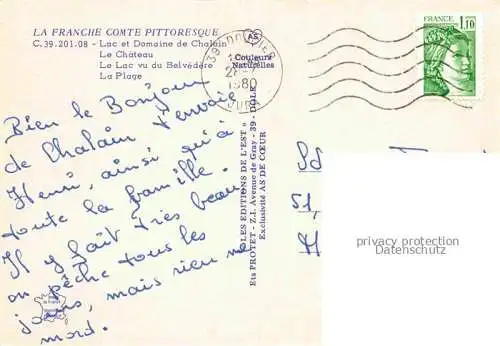 LA FRANCHE COMTE PITTORESQUE
C.39.201.08 - Lac et Domaine de Chalain
Le Château
Le Lac vu du Belvédère
La Plage
AS
Couleurs
Naturelles
39 DOUCIER
1980
JURA
FRANCE
1,10
Bien le Bonjour
de Chalain t'envoie
Henri, ainsi qu'à
toute la famille.
Il y fait très beau
on pêche tous les
jours, mais rien ne
mord.
"LES EDITIONS DE L'EST"
Ets PROTET - Z.I. Avenue de Gray - 39 - DOLE
Exclusivité AS DE CŒUR
51,
privacy protection
Datenschutz